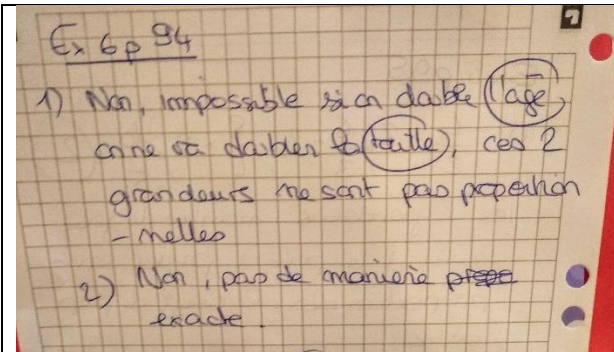 Ex 6 p 94
1) Non, impossible si on double l'âge,
on ne va doubler la taille, ces 2
grandeurs ne sont pas proportion
-nelles
2) Non, pas de manière
exacte.